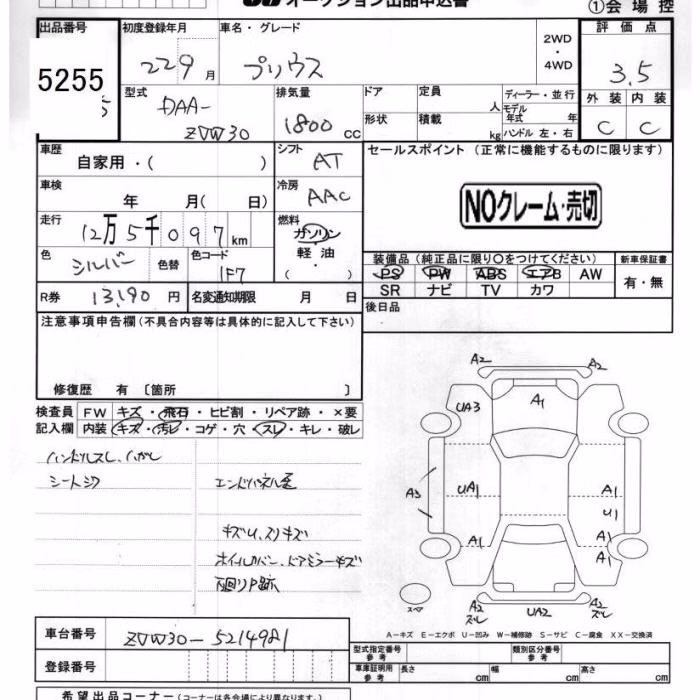 オークション出品申込書
①会場控
出品番号
5255
5
初度登録年月
22 9 月
車名・グレード
プリウス
2WD
・
4WD
評価点
3.5
外装 内装
C C
型式
DAA-
ZVW30
排気量
1800 cc
ドア
定員
人
形状
積載
kg
ディーラー・並行
モデル年式 年
ハンドル 左・右
車歴
自家用・( )
シフト
AT
セールスポイント (正常に機能するものに限ります)
NOクレーム・売切
車検
年 月( 日)
冷房
AAC
走行
12万5千097km
燃料
ガソリン
軽油・
( )
色
シルバー
色替
色コード
1F7
装備品 (純正品に限り○をつけてください)
PS PW ABS エアB AW
SR ナビ TV カワ
新車保証書
有・無
R券 13,190 円
名変通知期限 月 日
後日品
注意事項申告欄 (不具合内容等は具体的に記入して下さい)
修復歴 有 〔箇所 〕
検査員
記入欄
FW キズ・飛石・ヒビ割・リペア跡・×要
内装 キズ・汚レ・コゲ・穴・スレ・キレ・破レ
ハンドルスレ、ハガレ
シートシワ
エンドパネル歪
キズU、スリキズ
ホイルカバー、ドアミラーキズ
下回りP跡
A2 A2
A1
UA3
A3
UA1
A1
U1
A1
A1
A1
スペア
A2
ズレ
UA2
A2
ズレ
A-キズ E-エクボ U-凹み W-補修跡 S-サビ C-腐食 XX-交換済
車台番号
ZVW30-5214981
登録番号
型式指定番号
参考
類別区分番号
参考
車庫証明用
参考
長さ cm
幅 cm
高さ cm
希望出品コーナー (コーナーは各会場により異なります。)